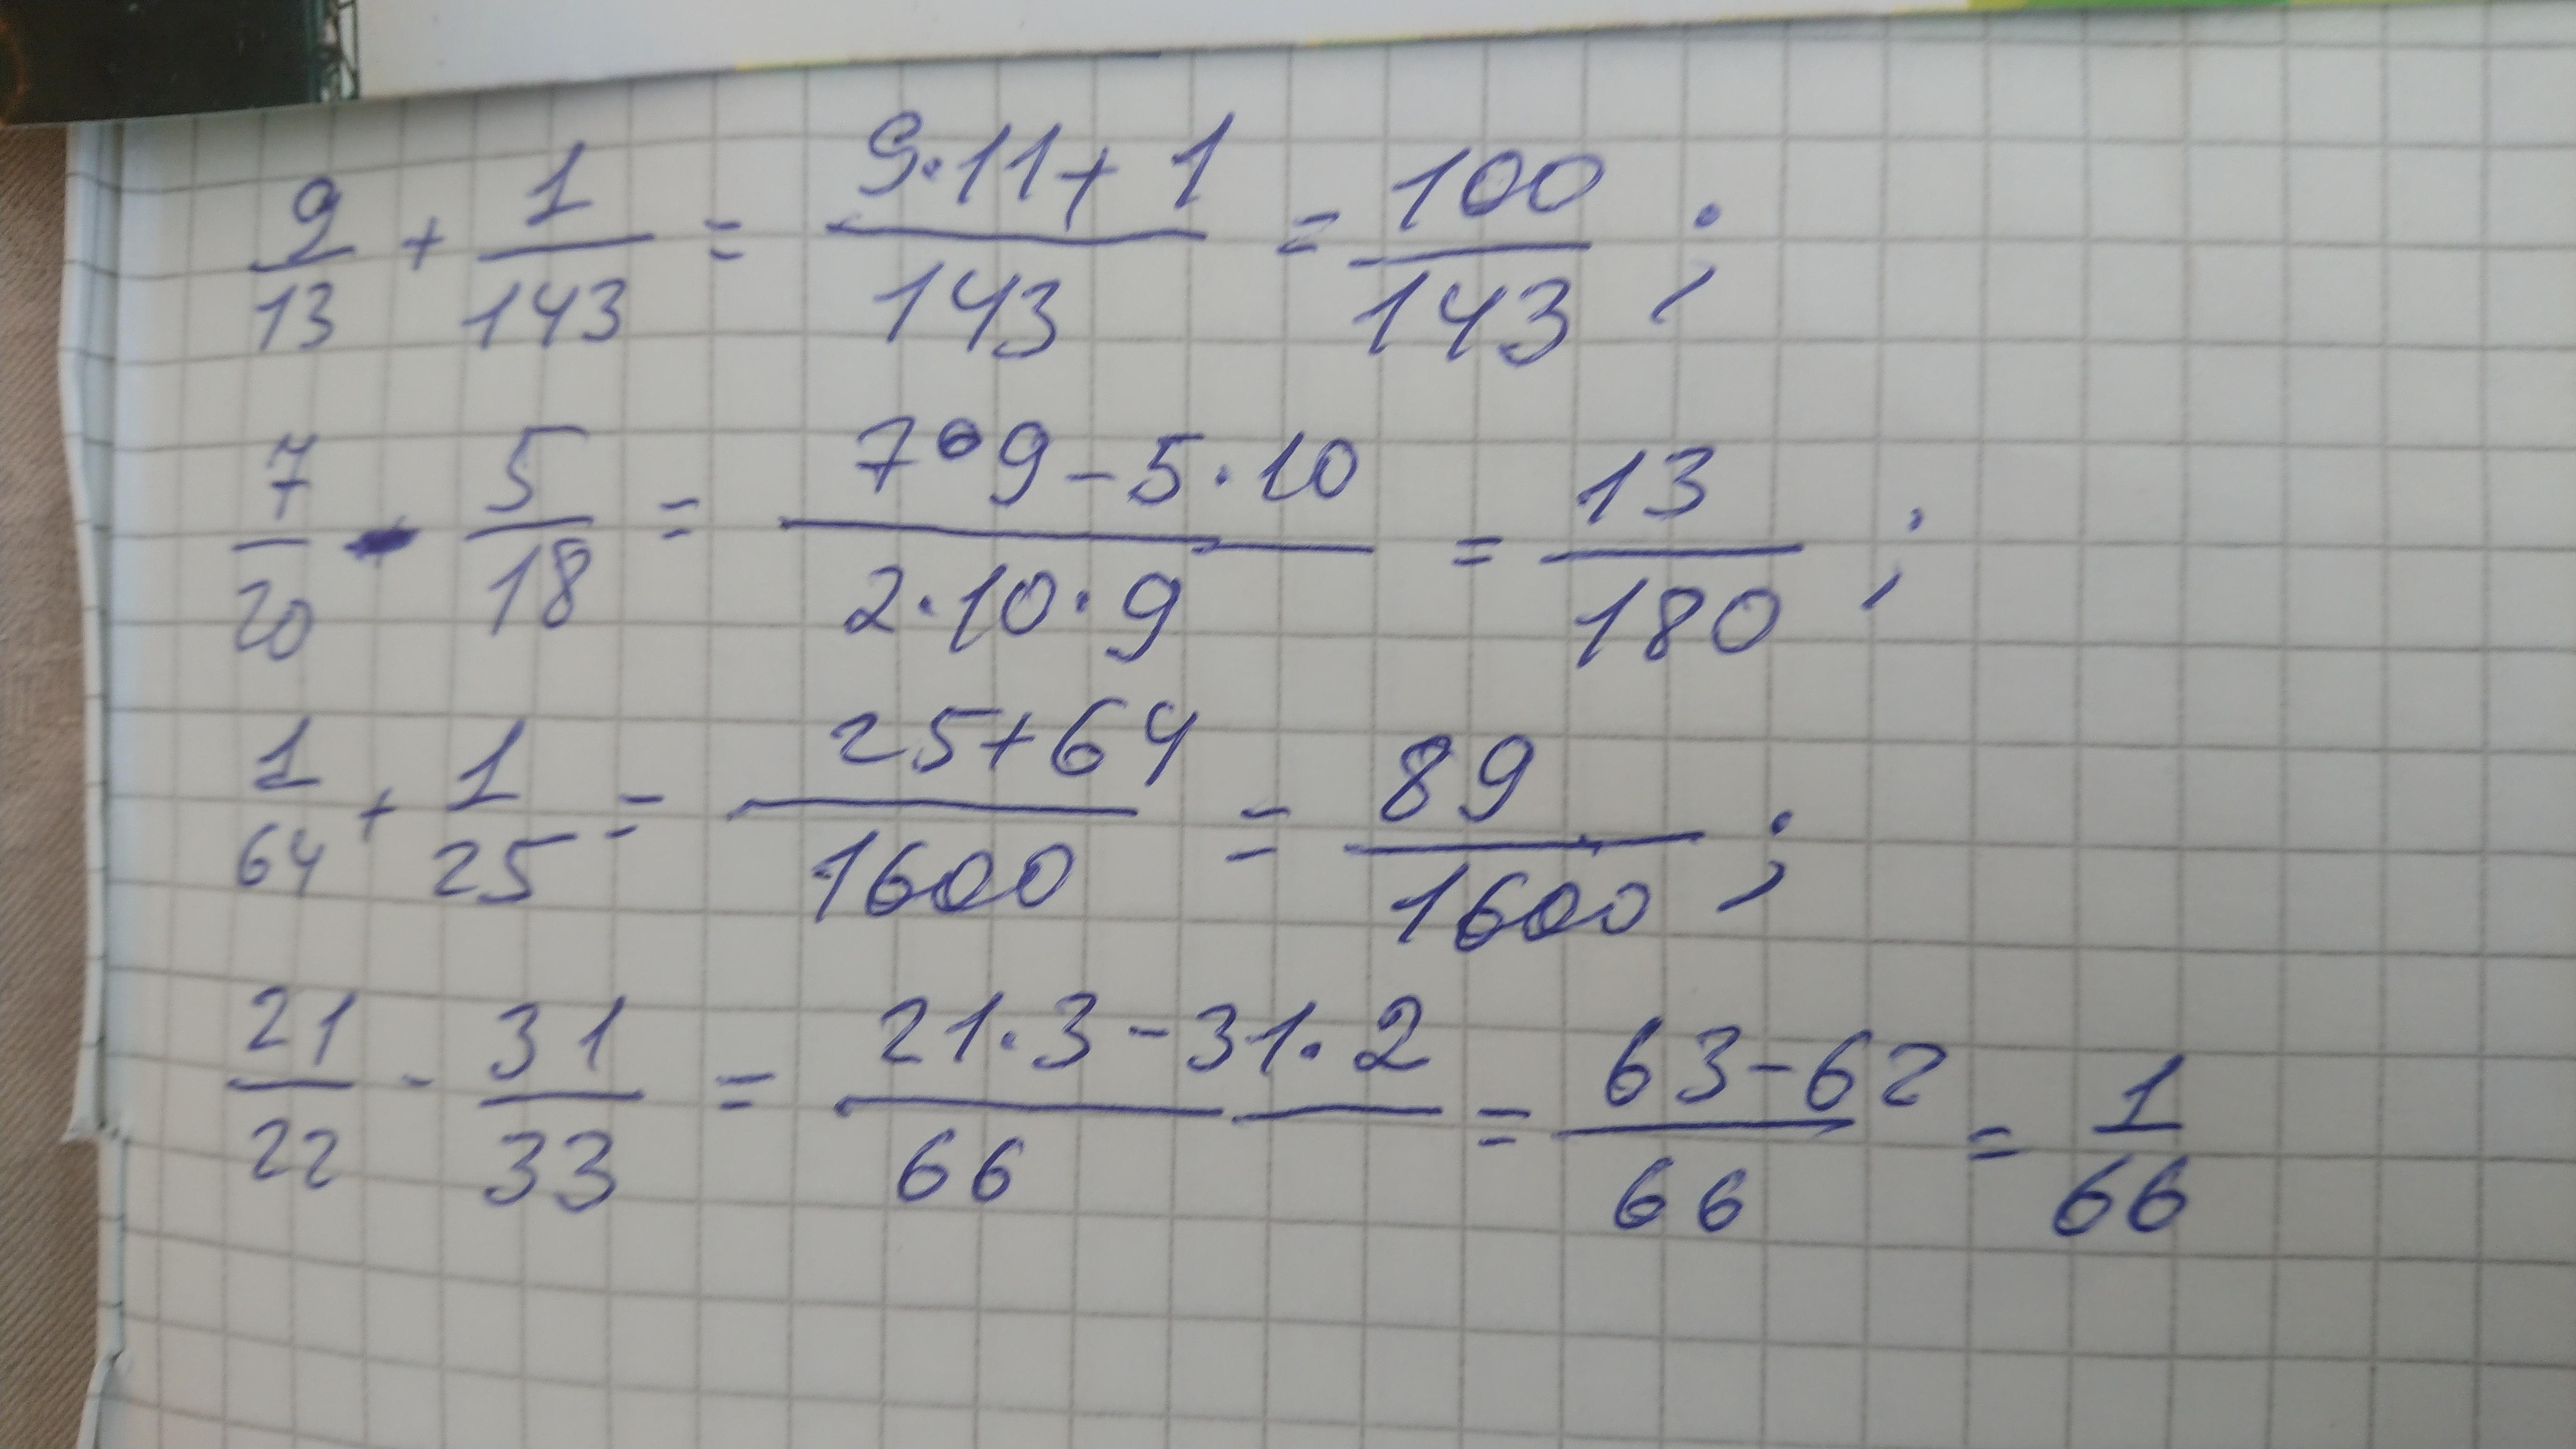 9/13 + 1/143 = (9·11+1)/143 = 100/143 ;
7/20 - 5/18 = (7·9-5·10)/(2·10·9) = 13/180 ;
1/64 + 1/25 = (25+64)/1600 = 89/1600 ;
21/22 - 31/33 = (21·3-31·2)/66 = (63-62)/66 = 1/66